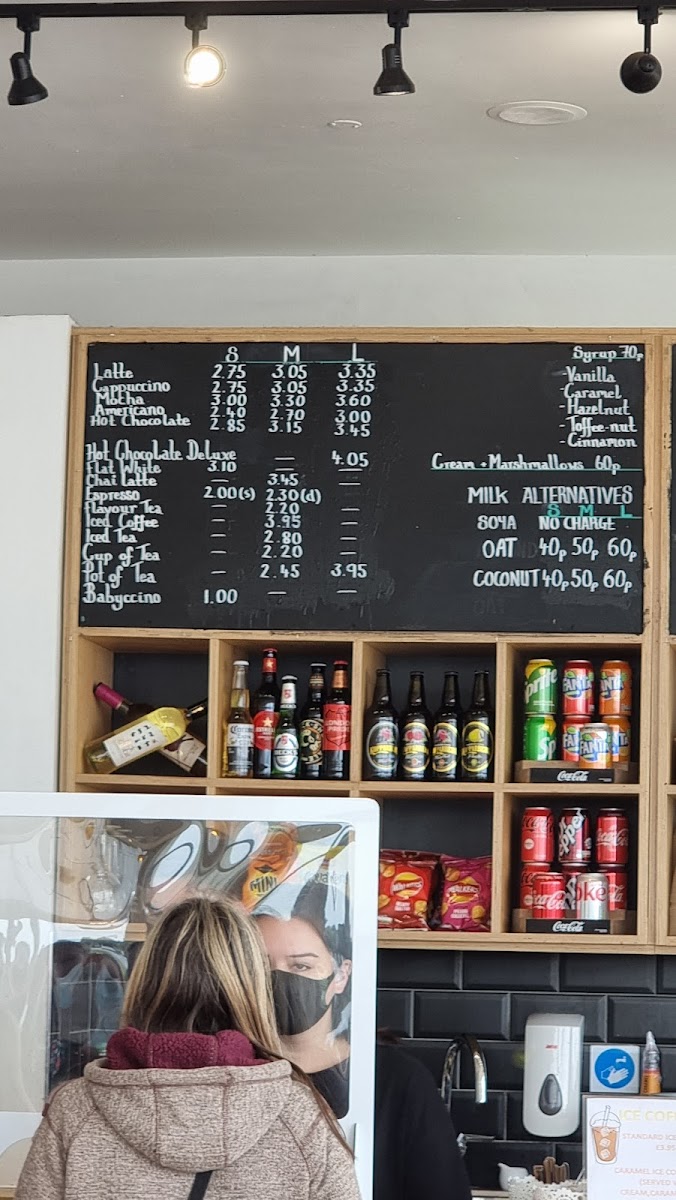 S M L
Latte 2.75 3.05 3.35
Cappuccino 2.75 3.05 3.35
Mocha 3.00 3.30 3.60
Americano 2.40 2.70 3.00
Hot Chocolate 2.85 3.15 3.45
Hot Chocolate Deluxe — 4.05
Flat White 3.10 — —
Chai Latte — 3.45 —
Espresso 2.00(s) 2.30(d)
Flavour Tea — 2.20 —
Iced Coffee — 3.95 —
Iced Tea — 2.80 —
Cup of Tea — 2.20 —
Pot of Tea — 2.45 3.95
Babyccino 1.00 — —
Syrup 70p
-Vanilla
-Caramel
-Hazelnut
-Toffee-nut
-Cinnamon
Cream + Marshmallows 60p
MILK ALTERNATIVES
S M L
SOYA NO CHARGE
OAT 40p 50p 60p
COCONUT 40p 50p 60p
Corona
Sprite
FANTA
FANTA
FANTA
Coca-Cola
WALKERS
WALKERS
Coca-Cola
Coke
Coca-Cola
MINI
ICE COF
STANDARD ICE
£3.95
CARAMEL ICE CO
(SERVED W
CREAM, CARAM